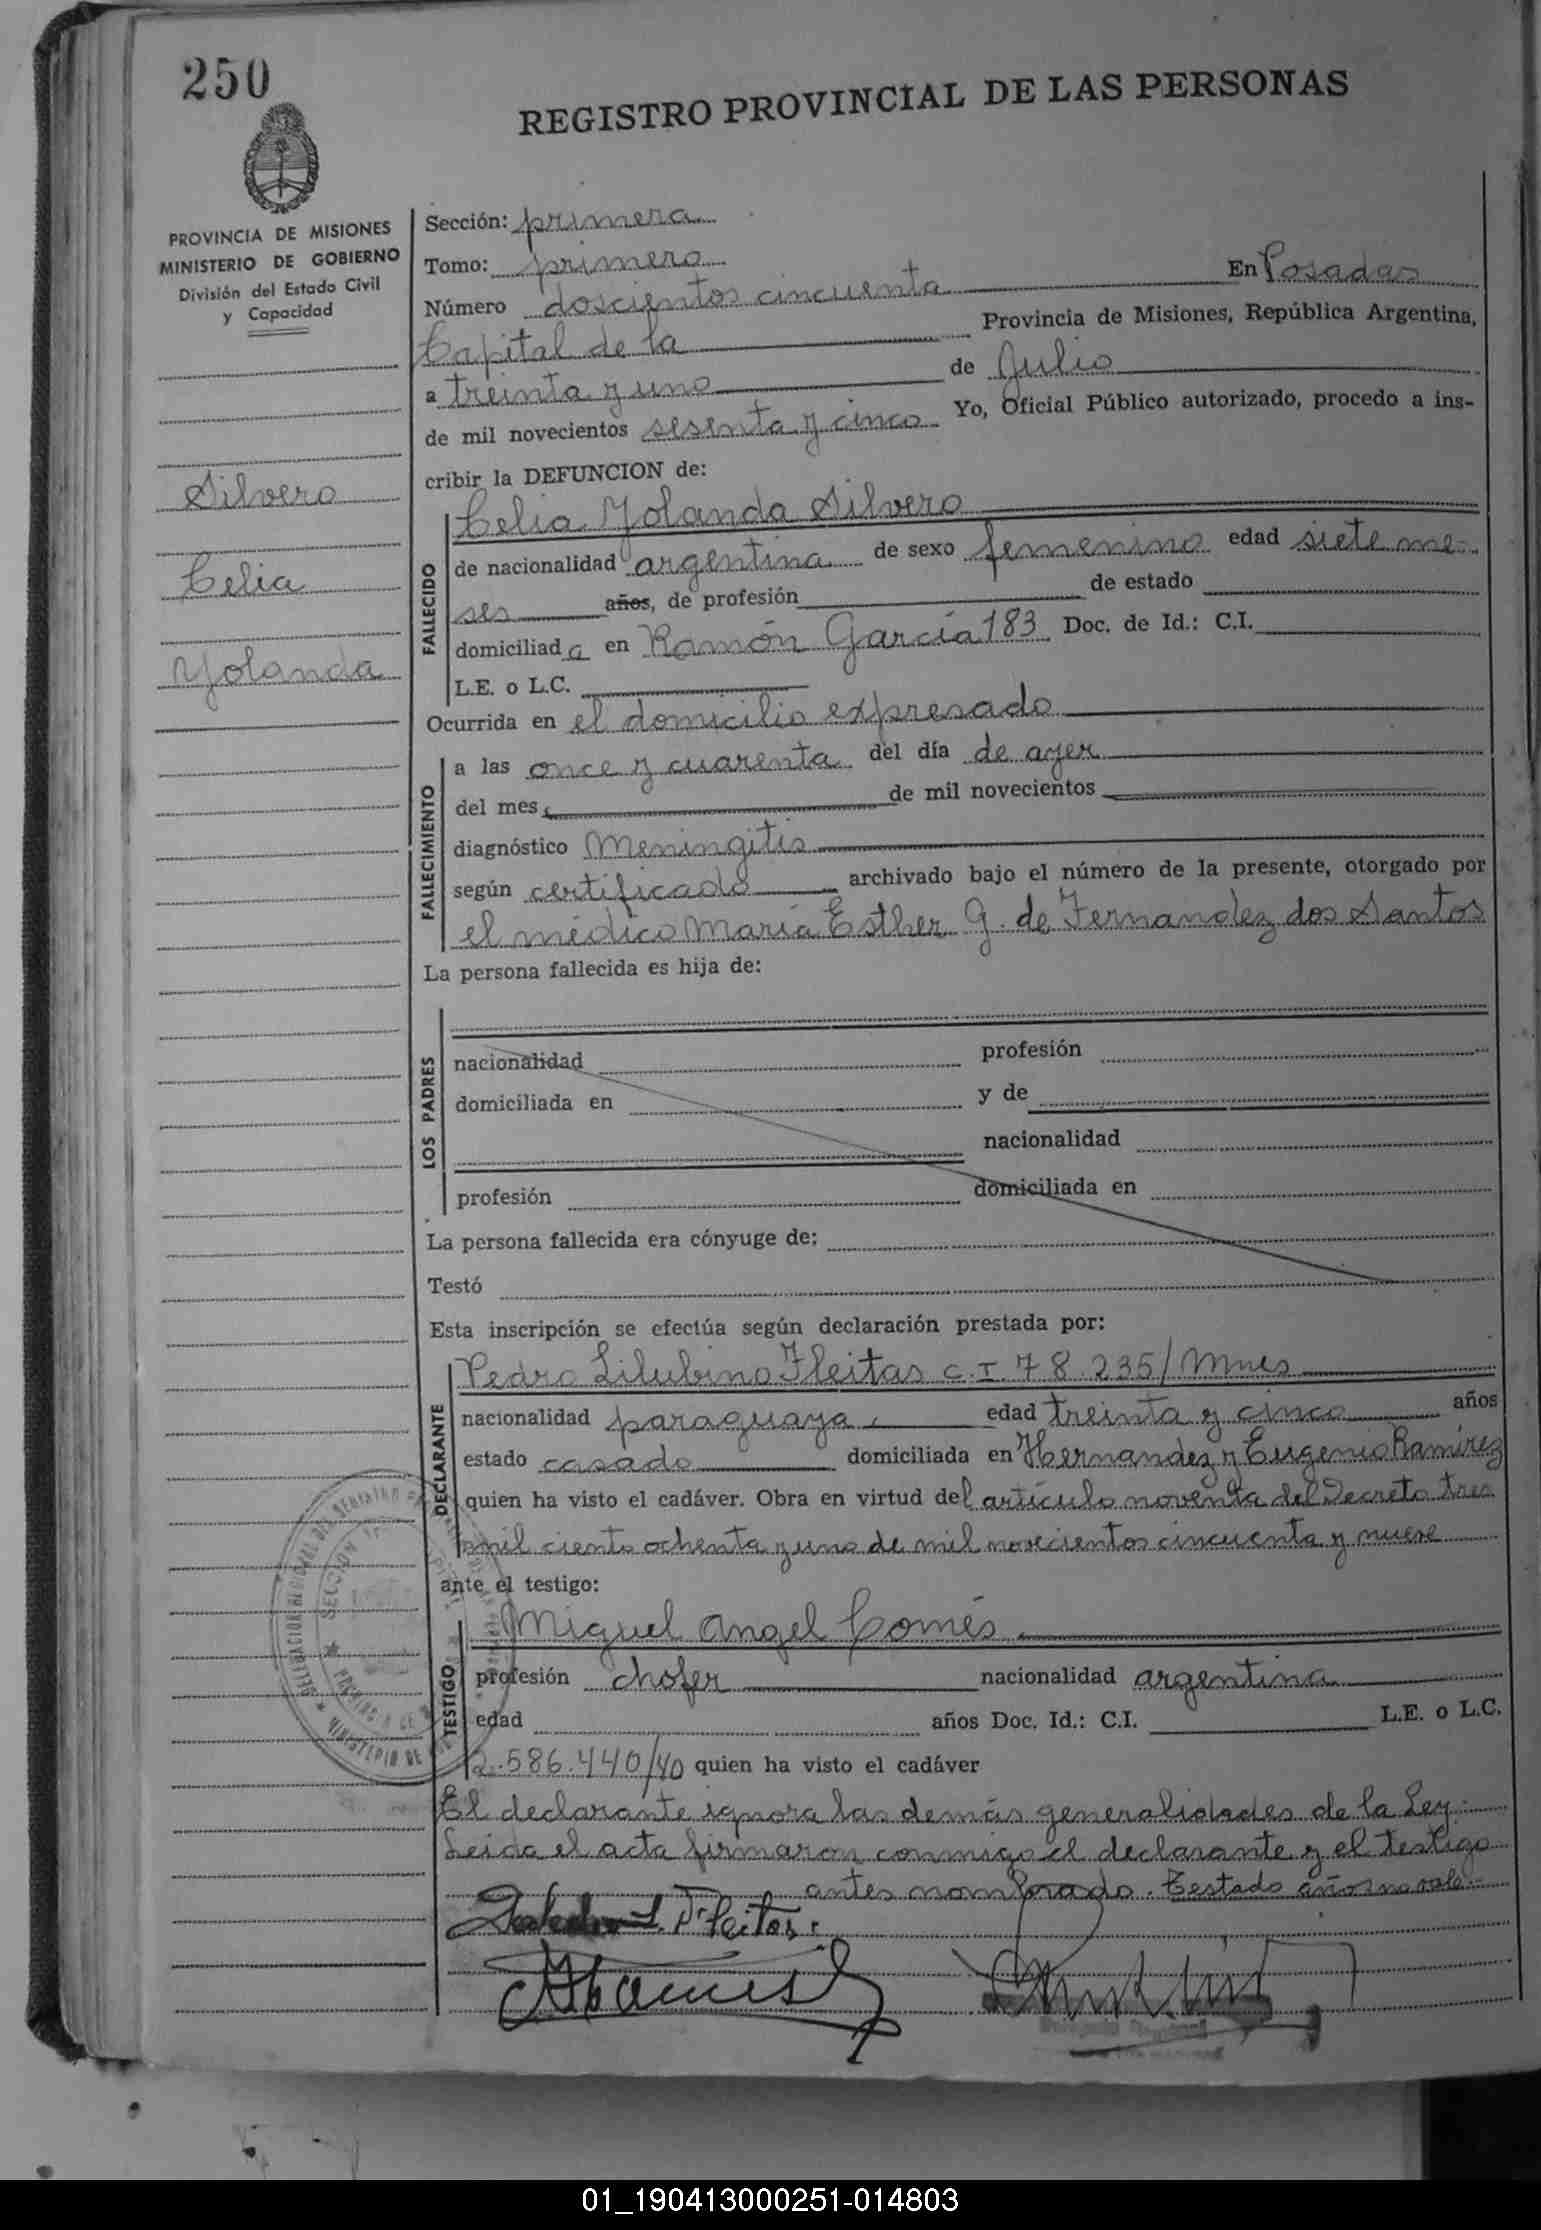 250
REGISTRO PROVINCIAL DE LAS PERSONAS
PROVINCIA DE MISIONES
MINISTERIO DE GOBIERNO
División del Estado Civil
y Capacidad
Silvero
Celia
Yolanda
Sección: primera
Tomo: primero
Número doscientos cincuenta En Posadas
Capital de la Provincia de Misiones, República Argentina,
a treinta y uno de Julio
de mil novecientos sesenta y cinco Yo, Oficial Público autorizado, procedo a ins-
cribir la DEFUNCION de:
FALLECIDO
Celia Yolanda Silvero
de nacionalidad argentina de sexo femenino edad siete me-
ses años, de profesión de estado
domiciliada en Ramón García 183 Doc. de Id.: C.I.
L.E. o L.C.
Ocurrida en el domicilio expresado
FALLECIMIENTO
a las once y cuarenta del día de ayer
del mes de mil novecientos
diagnóstico Meningitis
según certificado archivado bajo el número de la presente, otorgado por
el médico María Esther G. de Fernandez dos Santos
La persona fallecida es hija de:
LOS PADRES
nacionalidad profesión
domiciliada en y de
nacionalidad
profesión domiciliada en
La persona fallecida era cónyuge de:
Testó
Esta inscripción se efectúa según declaración prestada por:
DECLARANTE
Pedro Lilubino Fleitas C.I. 78.235/Mnes
nacionalidad paraguaya, edad treinta y cinco años
estado casado domiciliada en Hernandez y Eugenio Ramírez
quien ha visto el cadáver. Obra en virtud del artículo noventa del Decreto tres
mil ciento ochenta y uno de mil novecientos cincuenta y nueve
ante el testigo:
TESTIGO
Miguel Angel Comés
profesión chofer nacionalidad argentina
edad años Doc. Id.: C.I. L.E. o L.C.
2.586.440/40 quien ha visto el cadáver
El declarante ignora las demás generalidades de la Ley.
Leida el acta firmaron conmigo el declarante y el testigo
antes nombrado. Testado años no vale.
L. Fleitas
01_190413000251-014803